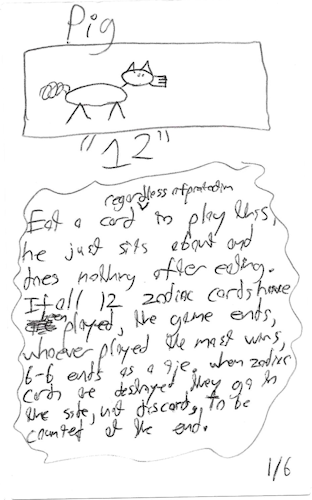 Pig
"12"
regardless of protection
Eat a card in play thus,
he just sits about and
does nothing after eating.
If all 12 zodiac cards have
been played, the game ends,
whoever played the most wins,
6-6 ends as a tie. when zodiac
cards are destroyed they go to
the side, not discard, to be
counted at the end.
1/6